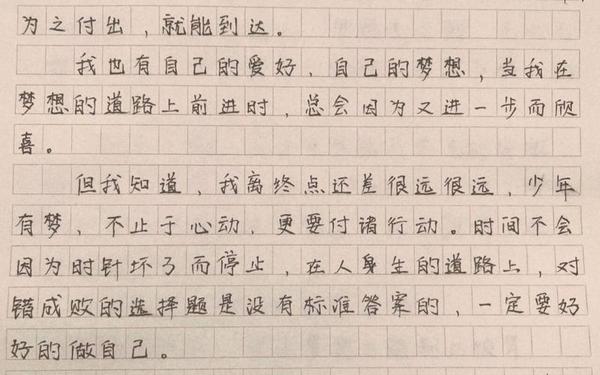 为之付出，就能到达。
我也有自己的爱好，自己的梦想，当我在
梦想的道路上前进时，总会因为又进一步而欣
喜。
但我知道，我离终点还差很远很远，少年
有梦，不止于心动，更要付诸行动。时间不会
因为时针坏了而停止，在人身生的道路上，对
错成败的选择题是没有标准答案的，一定要好
好的做自己。